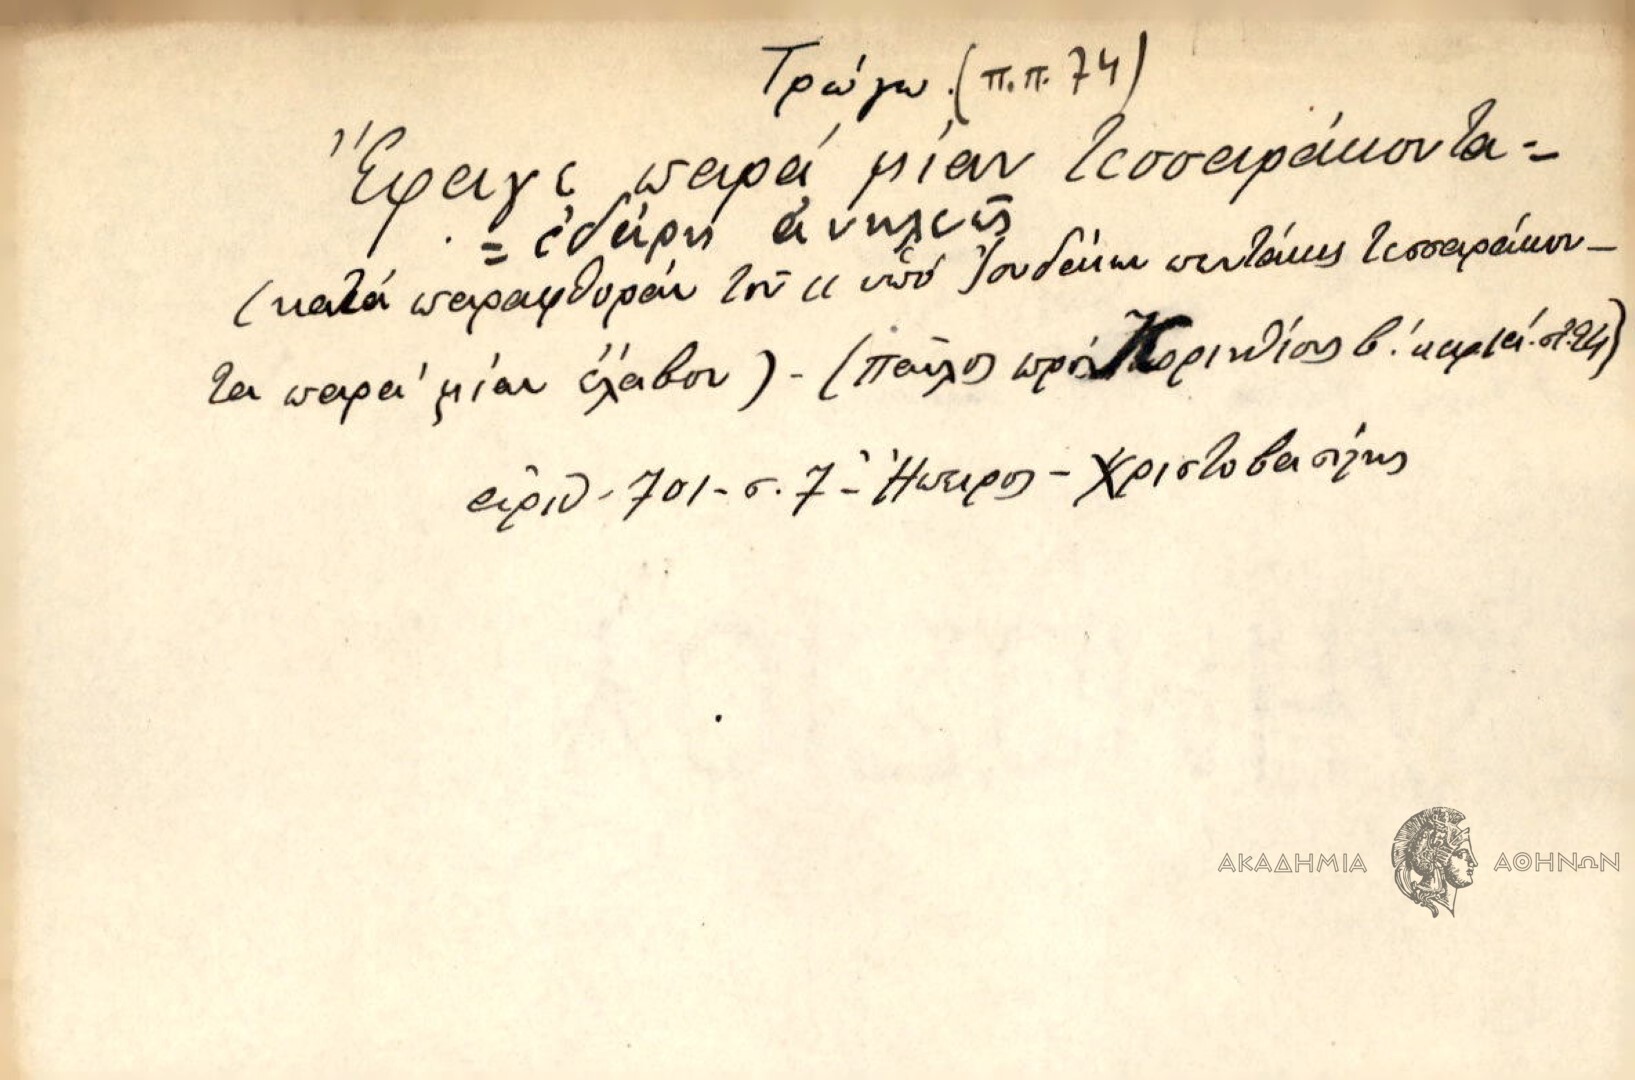 Τρώγω. (π.π. 74)
Ἔφαγε παρά μίαν τεσσαράκοντα =
= ἐδάρη ἀνηλεῶς
(κατά παραφθοράν τοῦ " ὑπό Ἰουδαίων πεντάκις τεσσαράκον-
τα παρά μίαν ἔλαβον) - (Παῦλος πρός Κορινθίους β'. στ. 24)
ἀριθ. 701 - σ. 7 - Ἤπειρος - Χριστοβασίλης
ΑΚΑΔΗΜΙΑ ΑΘΗΝΩΝ